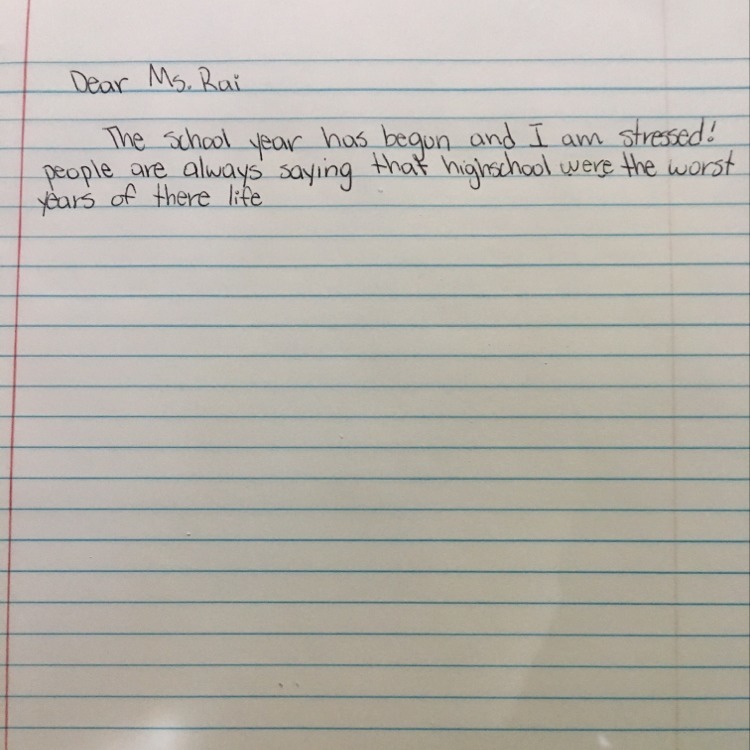 Dear Ms. Rai
The school year has begun and I am stressed!
people are always saying that highschool were the worst
years of there life